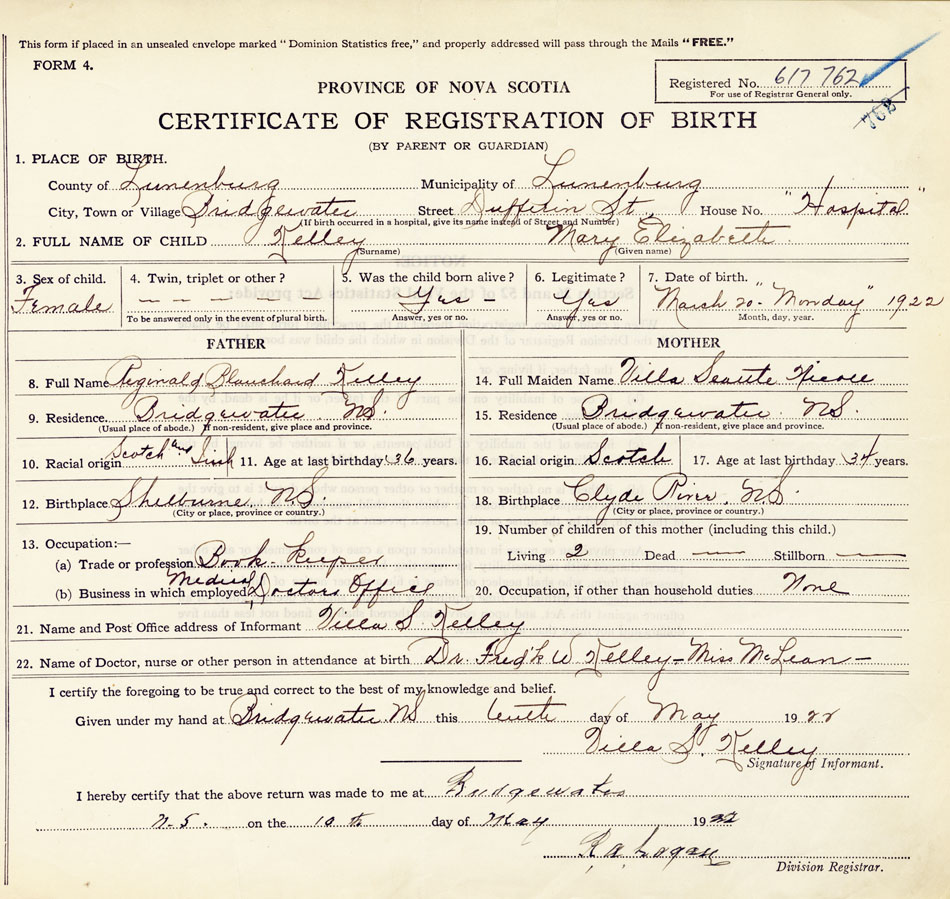 This form if placed in an unsealed envelope marked "Dominion Statistics free," and properly addressed will pass through the Mails "FREE."
FORM 4.
Registered No. 617 762
For use of Registrar General only.
762
PROVINCE OF NOVA SCOTIA
CERTIFICATE OF REGISTRATION OF BIRTH
(BY PARENT OR GUARDIAN)
1. PLACE OF BIRTH.
County of Lunenburg Municipality of Lunenburg
City, Town or Village Bridgewater Street Dufferin St. House No. "Hospital"
(If birth occurred in a hospital, give its name instead of Street and Number)
2. FULL NAME OF CHILD Kelley Mary Elizabeth
(Surname) (Given name)
3. Sex of child. 4. Twin, triplet or other? 5. Was the child born alive? 6. Legitimate? 7. Date of birth.
Female — — — — — Yes Yes March 20" "Monday" 1922
To be answered only in the event of plural birth. Answer, yes or no. Answer, yes or no. Month, day, year.
FATHER
8. Full Name Reginald Blanchard Kelley
9. Residence. Bridgewater NS.
(Usual place of abode.) If non-resident, give place and province.
10. Racial origin Scotch and Irish 11. Age at last birthday 36 years.
12. Birthplace Shelburne, NS.
(City or place, province or country.)
13. Occupation:—
(a) Trade or profession Book-keeper
(b) Business in which employed Medical Doctors Office
MOTHER
14. Full Maiden Name Villa Nicoll
15. Residence Bridgewater. NS.
(Usual place of abode.) If non-resident, give place and province.
16. Racial origin Scotch 17. Age at last birthday 34 years.
18. Birthplace Clyde River. N.S.
(City or place, province or country.)
19. Number of children of this mother (including this child.)
Living 2 Dead — Stillborn —
20. Occupation, if other than household duties None
21. Name and Post Office address of Informant Villa S. Kelley
22. Name of Doctor, nurse or other person in attendance at birth Dr. Fred'k W Kelley — Miss McLean —
I certify the foregoing to be true and correct to the best of my knowledge and belief.
Given under my hand at Bridgewater. NS this tenth day of May 1922
Villa S. Kelley
Signature of Informant.
I hereby certify that the above return was made to me at Bridgewater
N.S. on the 10th day of May 1922
Logan
Division Registrar.